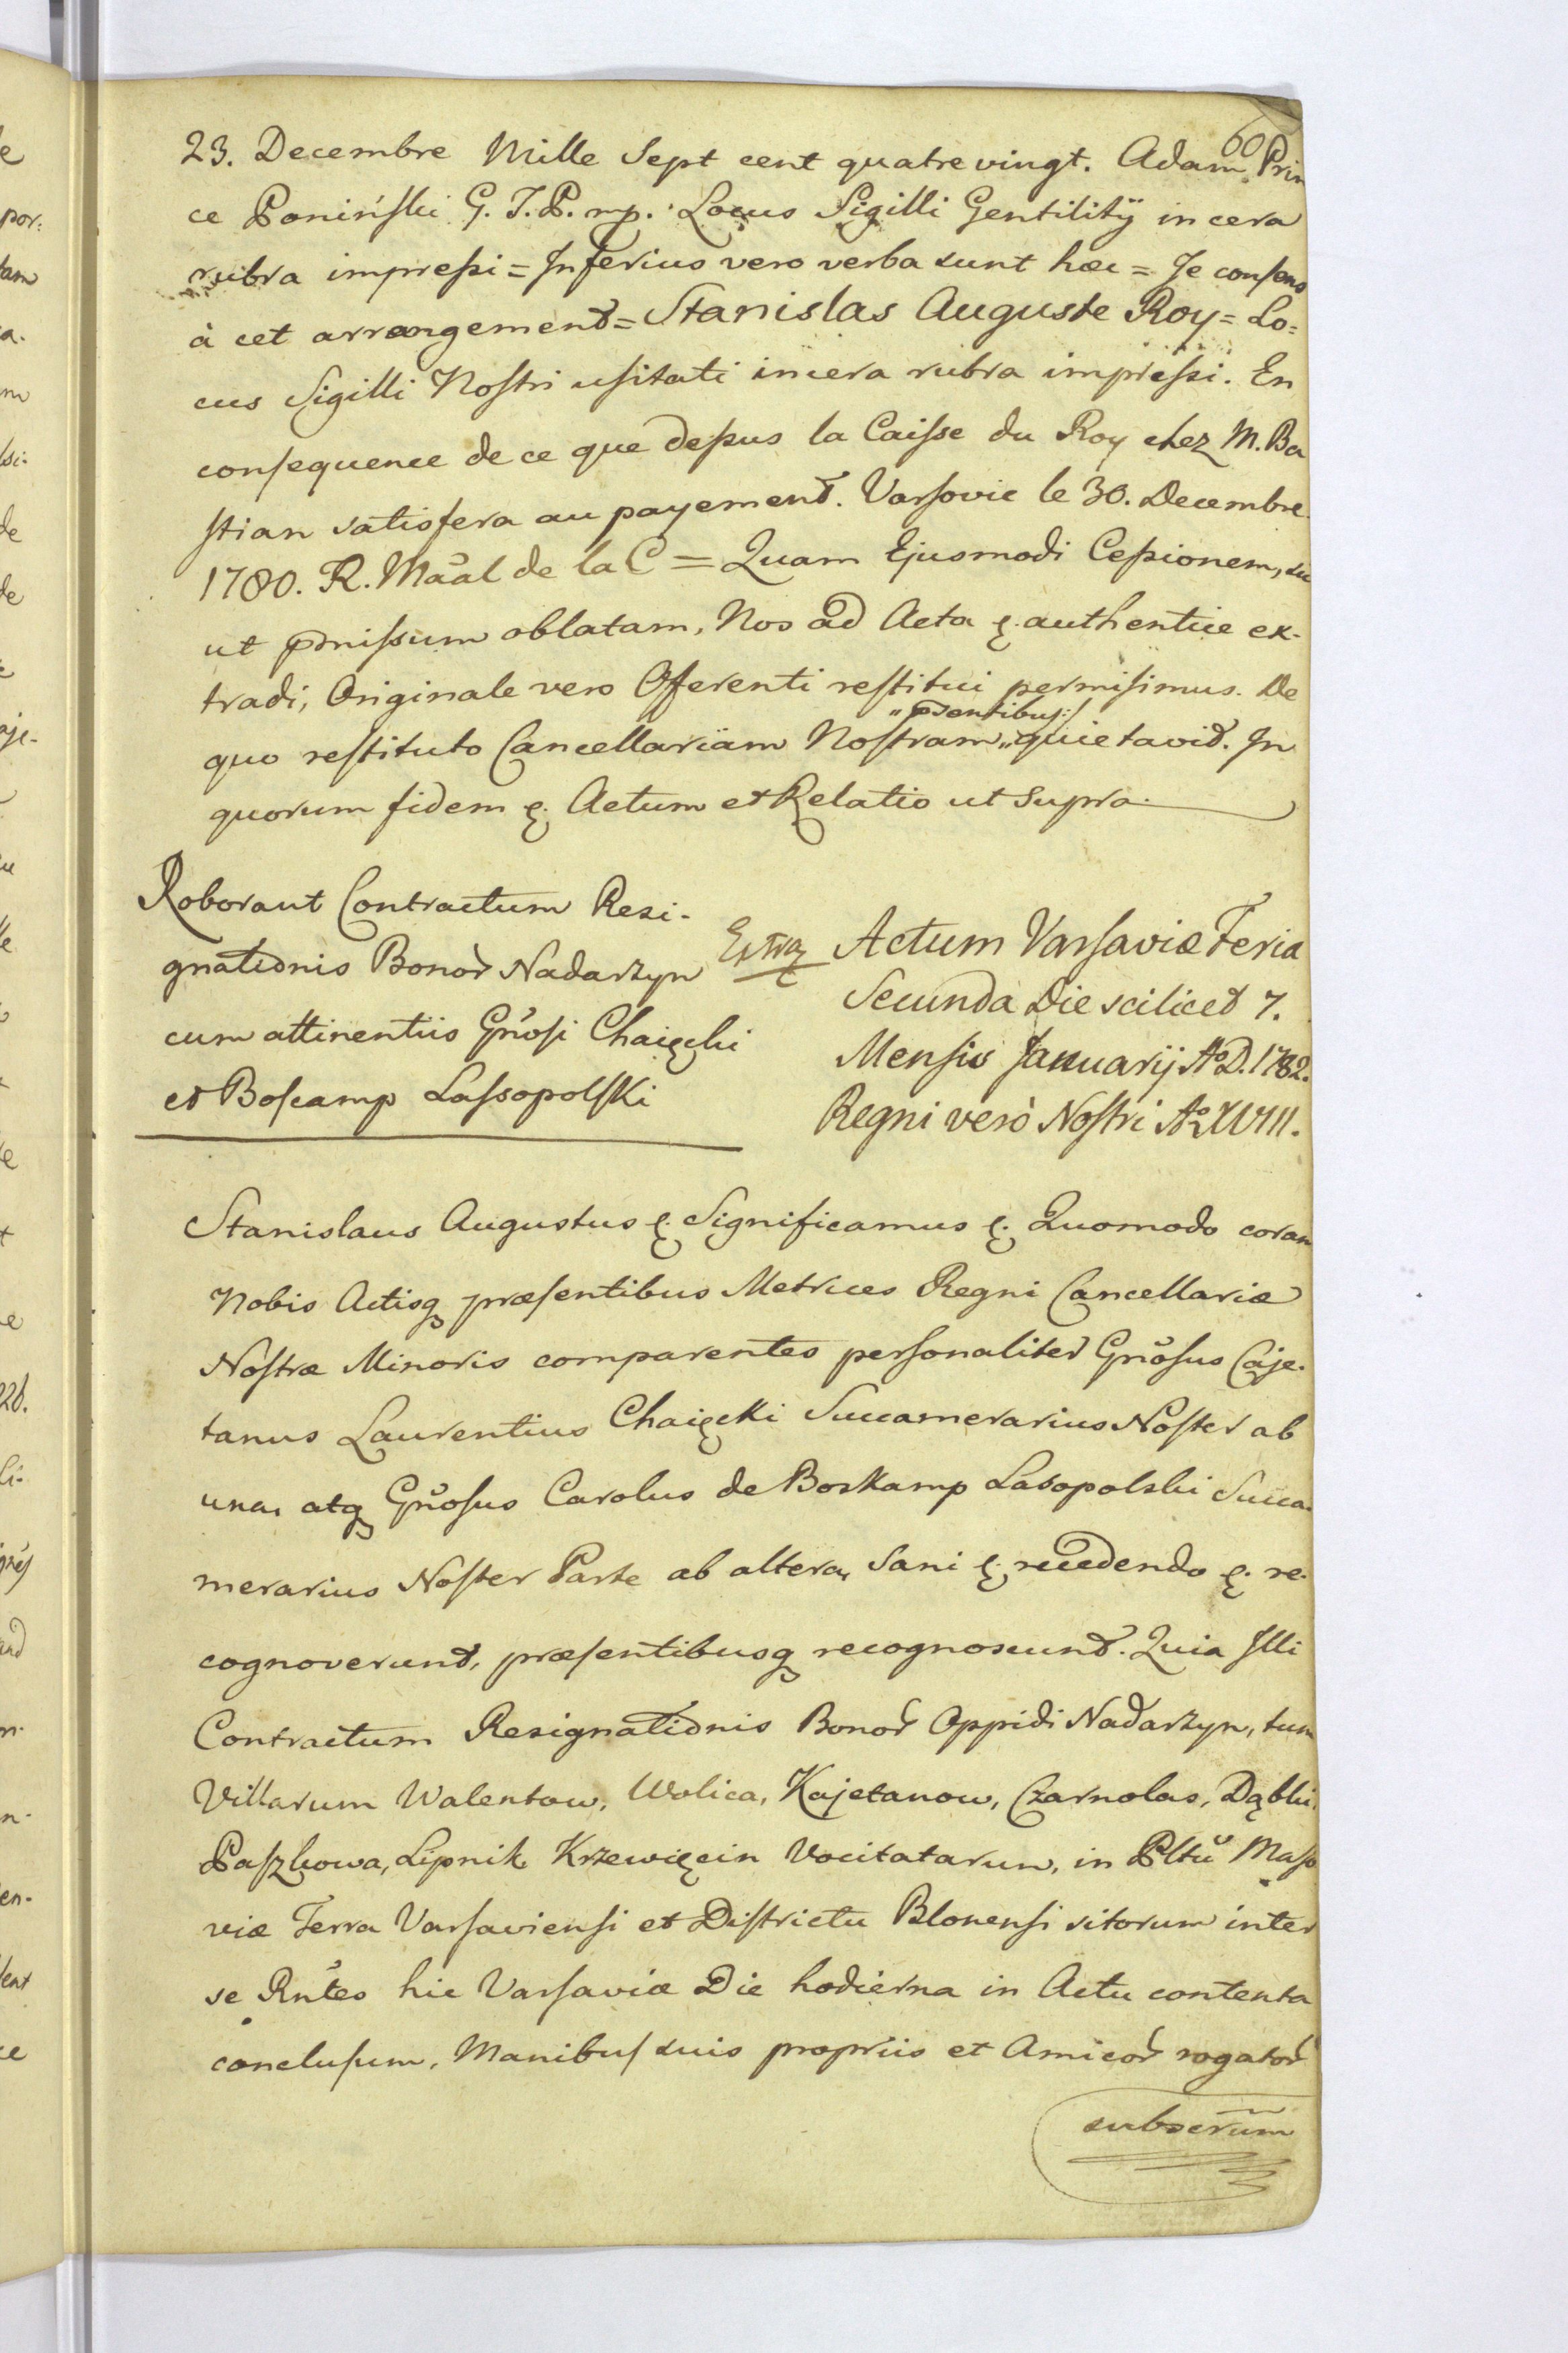 60
23. Decembre Mille Sept cent quatre vingt. Adam Prin
ce Poniński G. T. P. mp. Locus Sigilli Gentilitÿ in cera
rubra impreſsi = Inferius vero verba sunt hæc = Je conſens
à cet arrangement = Stanislas Auguste Roy = Lo=
cus Sigilli Noſtri uſitati in cera rubra impreſsi. En
conſequence de ce que deſsus la Caiſse du Roy chez M. Ba
ſtian satisfera au payement. Varſovie le 30. Decembre
1780. R. Maãl de la C = Quam Ejusmodi Ceſsionem, su
ut pmiſsum oblatam, Nos ad Acta ę. authentice ex-
tradi, Originale vero Offerenti reſtitui permiſimus. De
quo reſtituto Cancellariam Noſtram „ quietavit. In
„ pſentibuſ:/
quorum fidem ę. Actum et Relatio ut Supra.
Roborant Contractum Resi-
gnatiõnis Bonor̃ Nadarzyn
cum attinentiis Gñosi Chaięcki
et Boſcamp Laſsopolſki
Extra
Actum Varſaviæ Feria
Secunda Die scilicet 7.
Menſis Januarij Aº D. 1782.
Regni verò Noſtri Aº XVIII.
Stanislaus Augustus ę. Significamus ę. Quomodo coram
Nobis Actisq præſentibus Metrices Regni Cancellariæ
Noſtræ Minoris comparentes perſonaliter Gñoſus Caje-
tanus Laurentius Chaięcki Succamerarius Noſter ab
una, atq Gñoſus Carolus de Boskamp Lasopolski Succa-
merarius Noſter Parte ab altera, Sani ę. recedendo ę. re-
cognoverunt, præſentibusq recognoscunt. Quia Illi
Contractum Resignatiõnis Bonor̃ Oppidi Nadarzyn, tum
Villarum Walentow, Wolica, Kajetanow, Czarnolas, Dąbki,
Paſzkowa, Lipnik Krzewięcin Vocitatarum, in Pltũ Maſo
viæ Terra Varſavienſi et Diſtrictu Blonenſi sitorum inter
se Rñtes hic Varſaviæ Die hodierna in Actu contenta
concluſum, Manibuſ suis propriis et Amicor̃ rogator̃
subscrũm